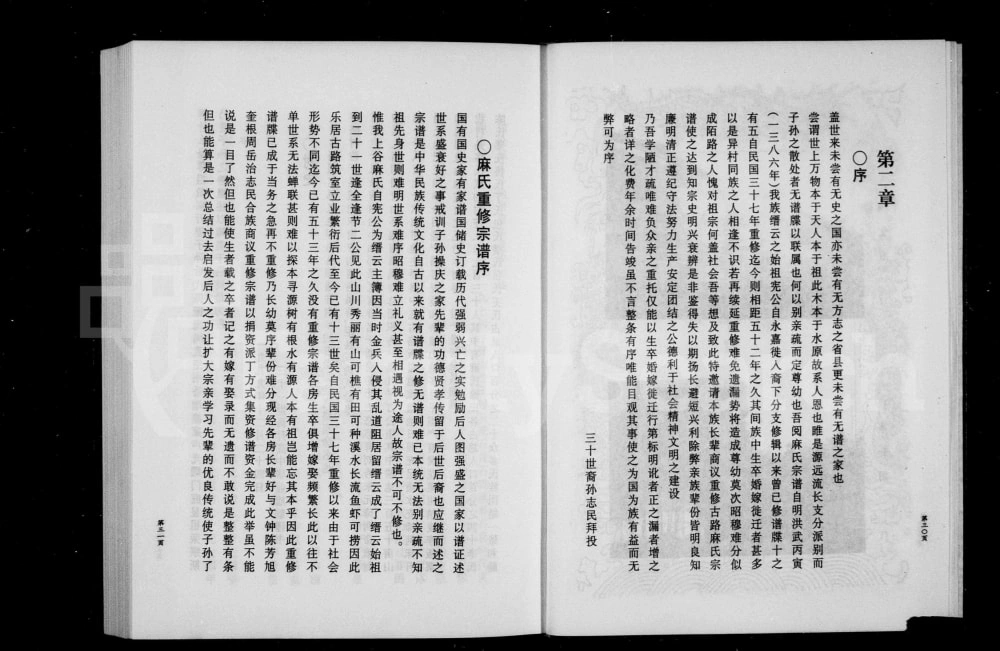 第二章
〇序
盖世来未尝有无史之国亦未尝有无方志之省县更未尝有无谱之家也
尝谓世上万物本于天人本于祖此木本于水原故系人恩也雎是源远流长支分派别而
子孙之散处者无谱牒以联属也何以别亲疏而定尊幼也吾阅麻氏宗谱自明洪武丙寅
(一三八六年)我族缙云之始祖宪公自永嘉徙人裔下分支修辑以来曾已修谱牒十之
有五自民国三十七年重修迄今则相距五十二年之久其间族中生卒婚嫁徙迁者甚多
以是异村同族之人相逢不识若再续延重修难免遗漏势将造成尊幼莫次昭穆难分似
成陌路之人愧对祖宗何盖社会吾等想及致此特邀请本族长辈商议重修古路麻氏宗
谱使之达到知宗史明兴衰辨是非鉴得失以期扬长避短兴利除弊亲族辈份皆明良知
廉明清正遵纪守法努力生产安定团结之公德利于社会精神文明之建设
乃吾学陋才疏唯难负众亲之重托仅能以生卒婚嫁徙迁行第标明讹者正之漏者增之
略者详之化费年余时间告竣虽不言整条有序唯能目观其事使之为国为族有益而无
弊可为序
三十世裔孙志民拜投
第三〇页
〇麻氏重修宗谱序
国有国史家有家谱国储史订载历代强弱兴亡之实勉励后人图强盛之国家以谱证述
世系盛衰好之事戒训子孙操庆之家先辈的功德贤孝传留于后世后裔也应继而述之
宗谱是中华民族传统文化自古以来就有谱牒之修无谱则难已本统无法别亲疏不知
祖先身世则难明世系难序昭穆难立礼义甚至相遇视为途人故宗谱不可不修也。
惟我上谷麻氏自宪公为缙云主簿因当时金兵入侵其乱道阻居留缙云成了缙云始祖
到二十一世逢全逢节二公见此山川秀丽有山可樵有田可种溪水长流鱼虾可捞因此
乐居古路筑室立业繁衍后代至今已有十三世矣自民国三十七年重修以来由于社会
形势不同迄今已有五十三年之久没有重修宗谱各房生卒俱增嫁娶频繁长此以往不
单世系无法蝉联甚则难以探本寻源树有根水有源人本有祖岂能忘其本乎因此重修
谱牒已成于当务之急再不重修乃长幼莫序辈份难分现经各房长辈好与文钟陈芳旭
奎根周岳治志民合族商议重修宗谱以捐资派丁方式集资修谱资金完成此举虽不能
说是一目了然但也能使生者载之卒者记之有嫁有娶录而无遗而不敢说是整整有条
但也能算是一次总结过去启发后人之功让扩大宗亲学习先辈的优良传统使子孙了
第三一页